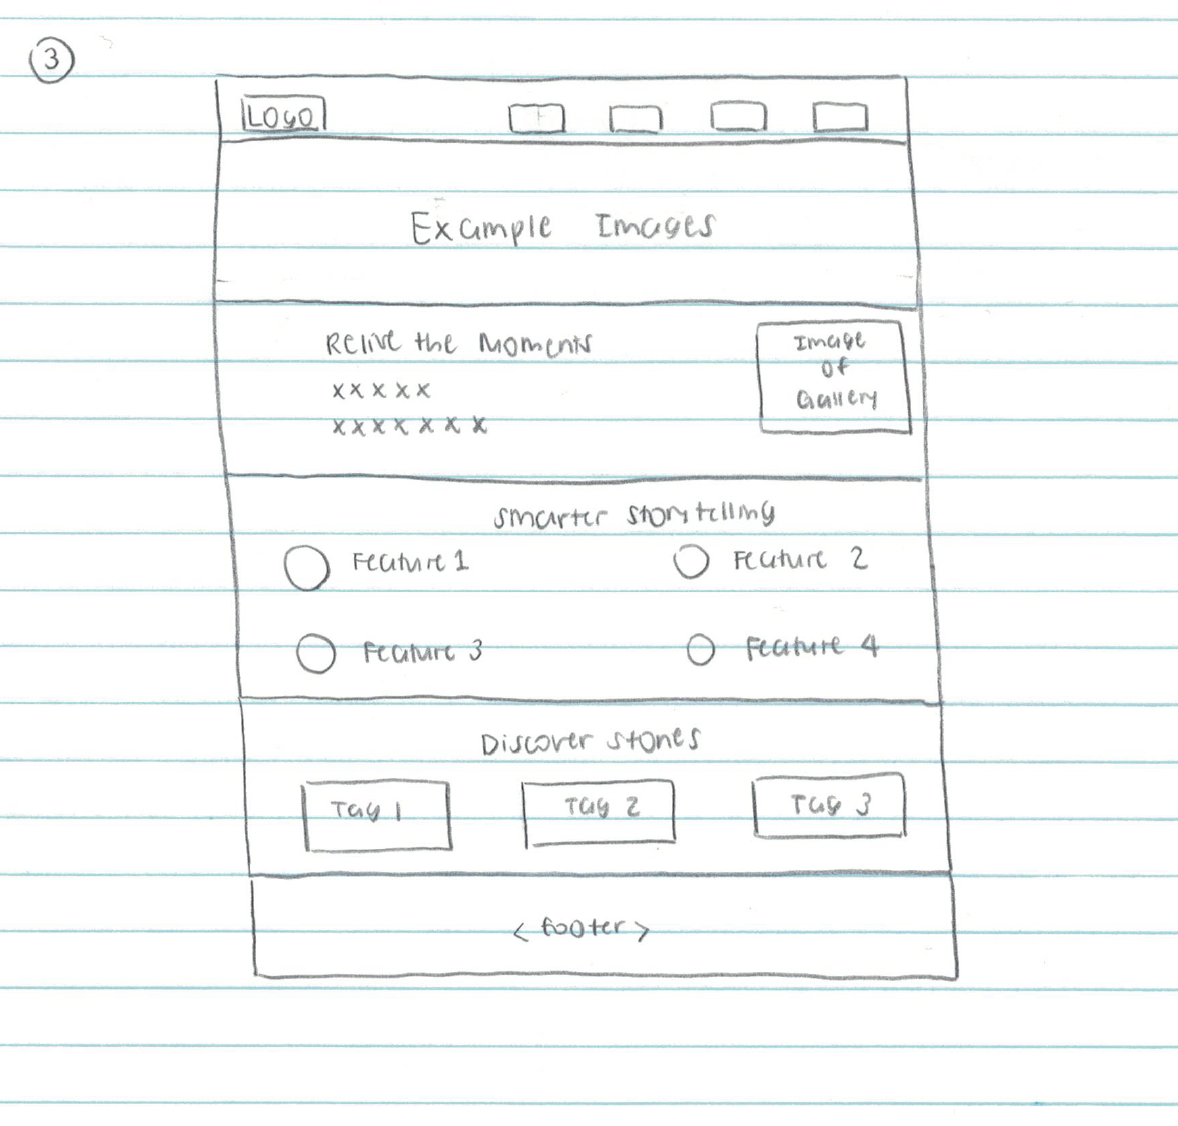 3
LOGO
Example Images
Relive the Moments
xxxxx
xxxxxxx
Image
of
Gallery
Smarter Storytelling
Feature 1 Feature 2
Feature 3 Feature 4
Discover Stories
Tag 1 Tag 2 Tag 3
<footer>